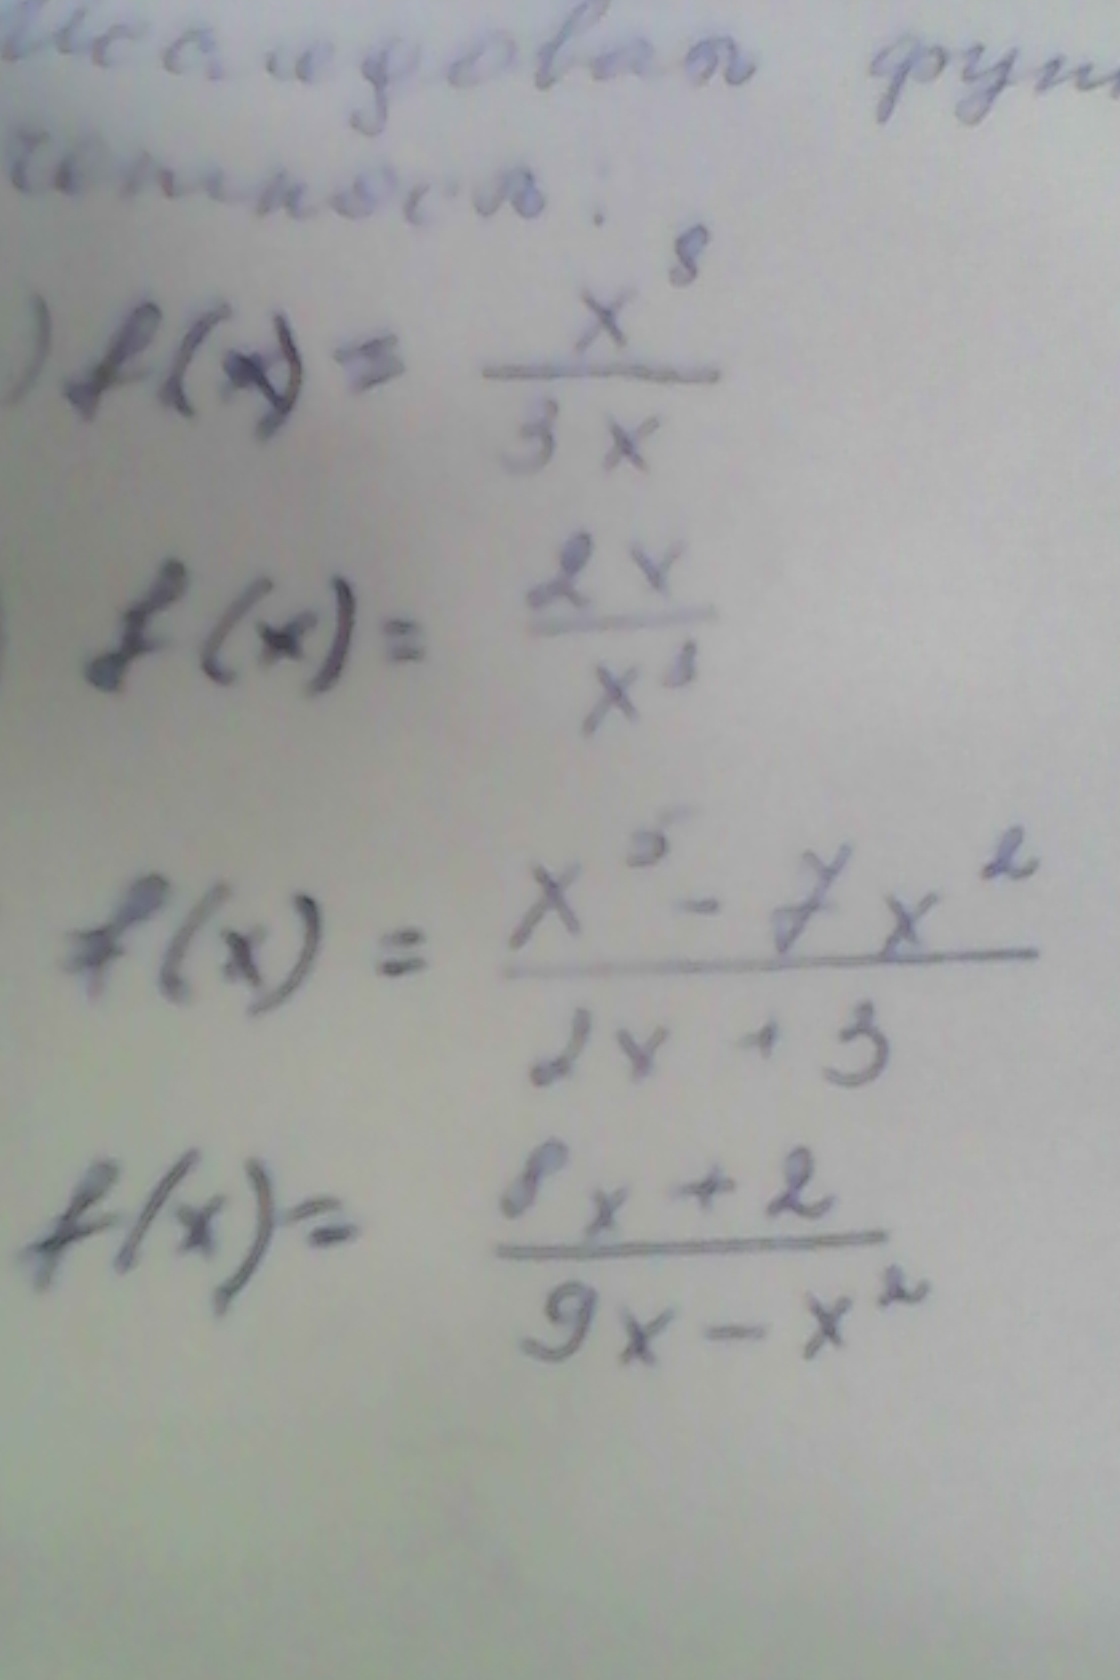 Исследоват фун
четность:
) f(x) = x⁸ / 3x
f(x) = 2x / x³
f(x) = x⁵ - 7x² / 2x + 3
f(x) = 8x + 2 / 9x - x²